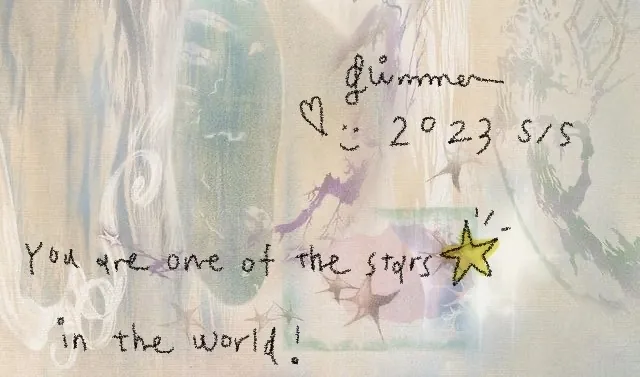 glimmer
♡ 2023 S/S
You are one of the stars
in the world!